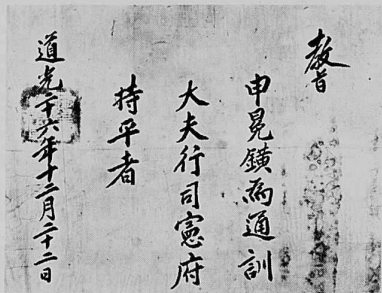 教旨
申冕鐄為通訓
大夫行司憲府
持平者
道光二十六年十二月二十二日